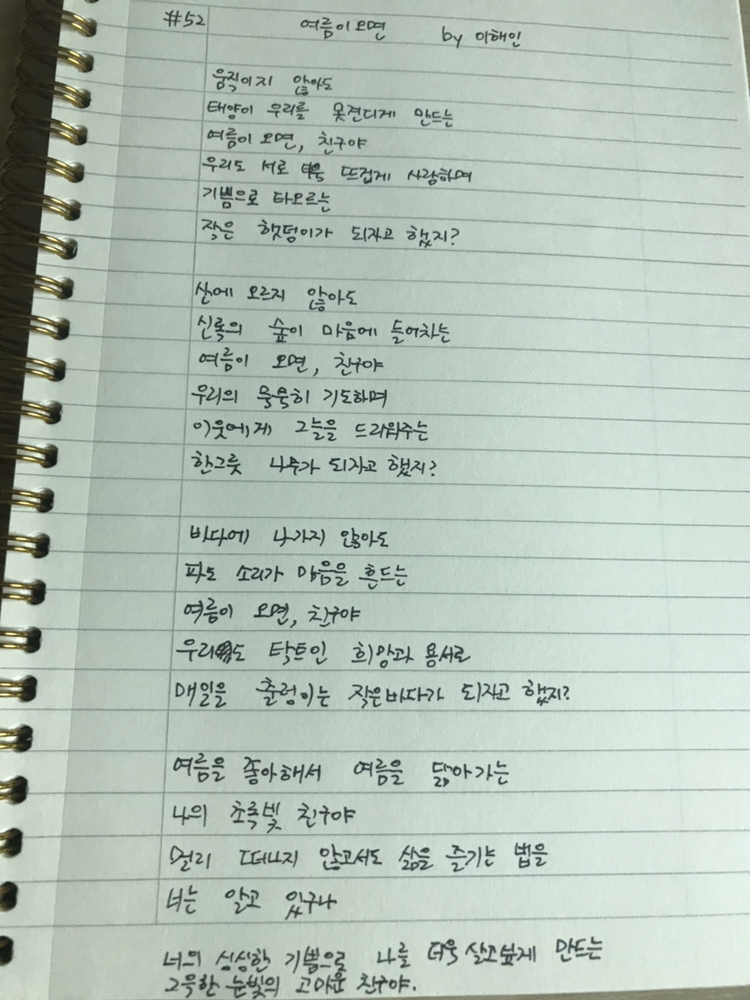 #52 여름이 오면 by 이해인
움직이지 않아도
태양이 우리를 못견디게 만드는
여름이 오면, 친구야
우리도 서로 뜨겁게 사랑하며
기쁨으로 타오르는
작은 햇덩이가 되자고 했지?
산에 오르지 않아도
신록의 숲이 마음에 들어차는
여름이 오면, 친구야
우리의 묵묵히 기도하며
이웃에게 그늘을 드리워주는
한그릇 나무가 되자고 했지?
바다에 나가지 않아도
파도 소리가 마음을 흔드는
여름이 오면, 친구야
우리도 탁트인 희망과 용서로
매일을 출렁이는 작은바다가 되자고 했지?
여름을 좋아해서 여름을 닮아가는
나의 초록빛 친구야
멀리 떠나지 않고서도 삶을 즐기는 법을
너는 알고 있구나
너의 싱싱한 기쁨으로 나를 더욱 살고싶게 만드는
그윽한 눈빛의 고마운 친구야.